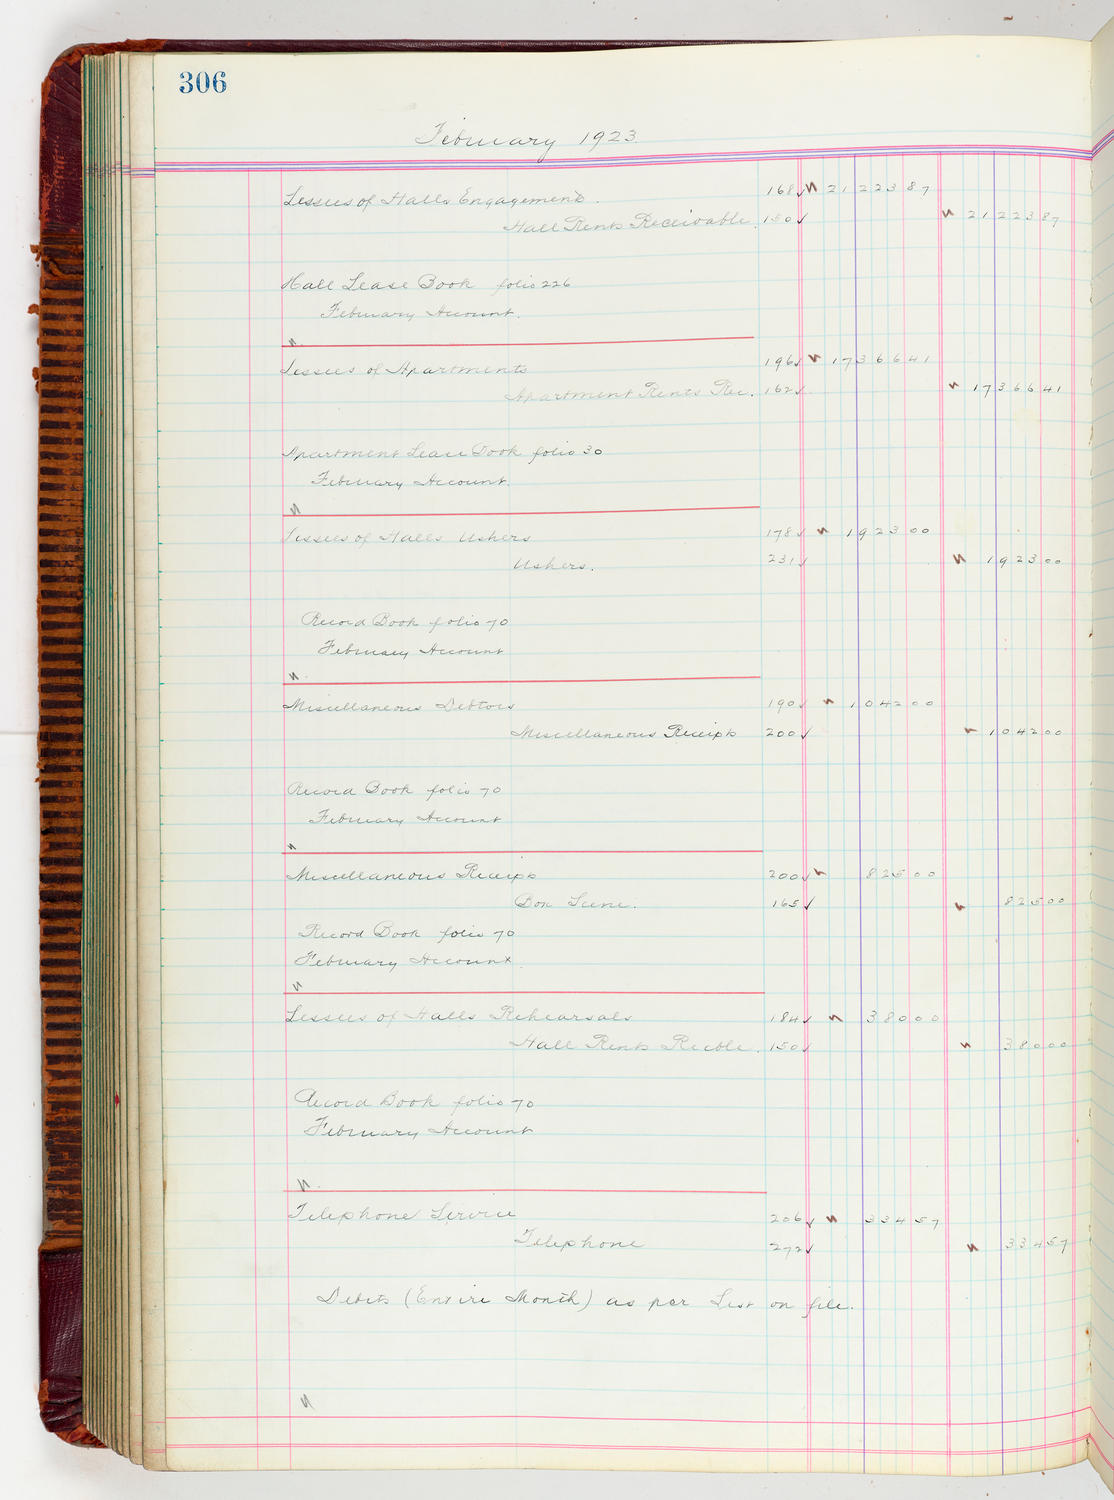 306
February 1923.
Lessees of Halls Engagements. 168 √ 21 223 87
Hall Rents Receivable. 150 √ 21 223 87
Hall Lease Book folio 226
February Account.
Lessees of Apartments 196 √ 17 366 41
Apartment Rents Rec. 162 √ 17 366 41
Apartment Lease Book folio 30
February Account.
Lessees of Halls Ushers 178 √ 1 923 00
Ushers. 231 √ 1 923 00
Record Book folio 70
February Account
Miscellaneous Debtors 190 √ 1 042 00
Miscellaneous Receipts 200 √ 1 042 00
Record Book folio 70
February Account
Miscellaneous Receipts 200 √ 825 00
Box Scene. 165 √ 825 00
Record Book folio 70
February Account
Lessees of Halls Rehearsals 184 √ 380 00
Hall Rents Recble. 150 √ 380 00
Record Book folio 70
February Account
Telephone Service 206 √ 334 57
Telephone 272 √ 334 57
Debits (Entire Month) as per List on file.